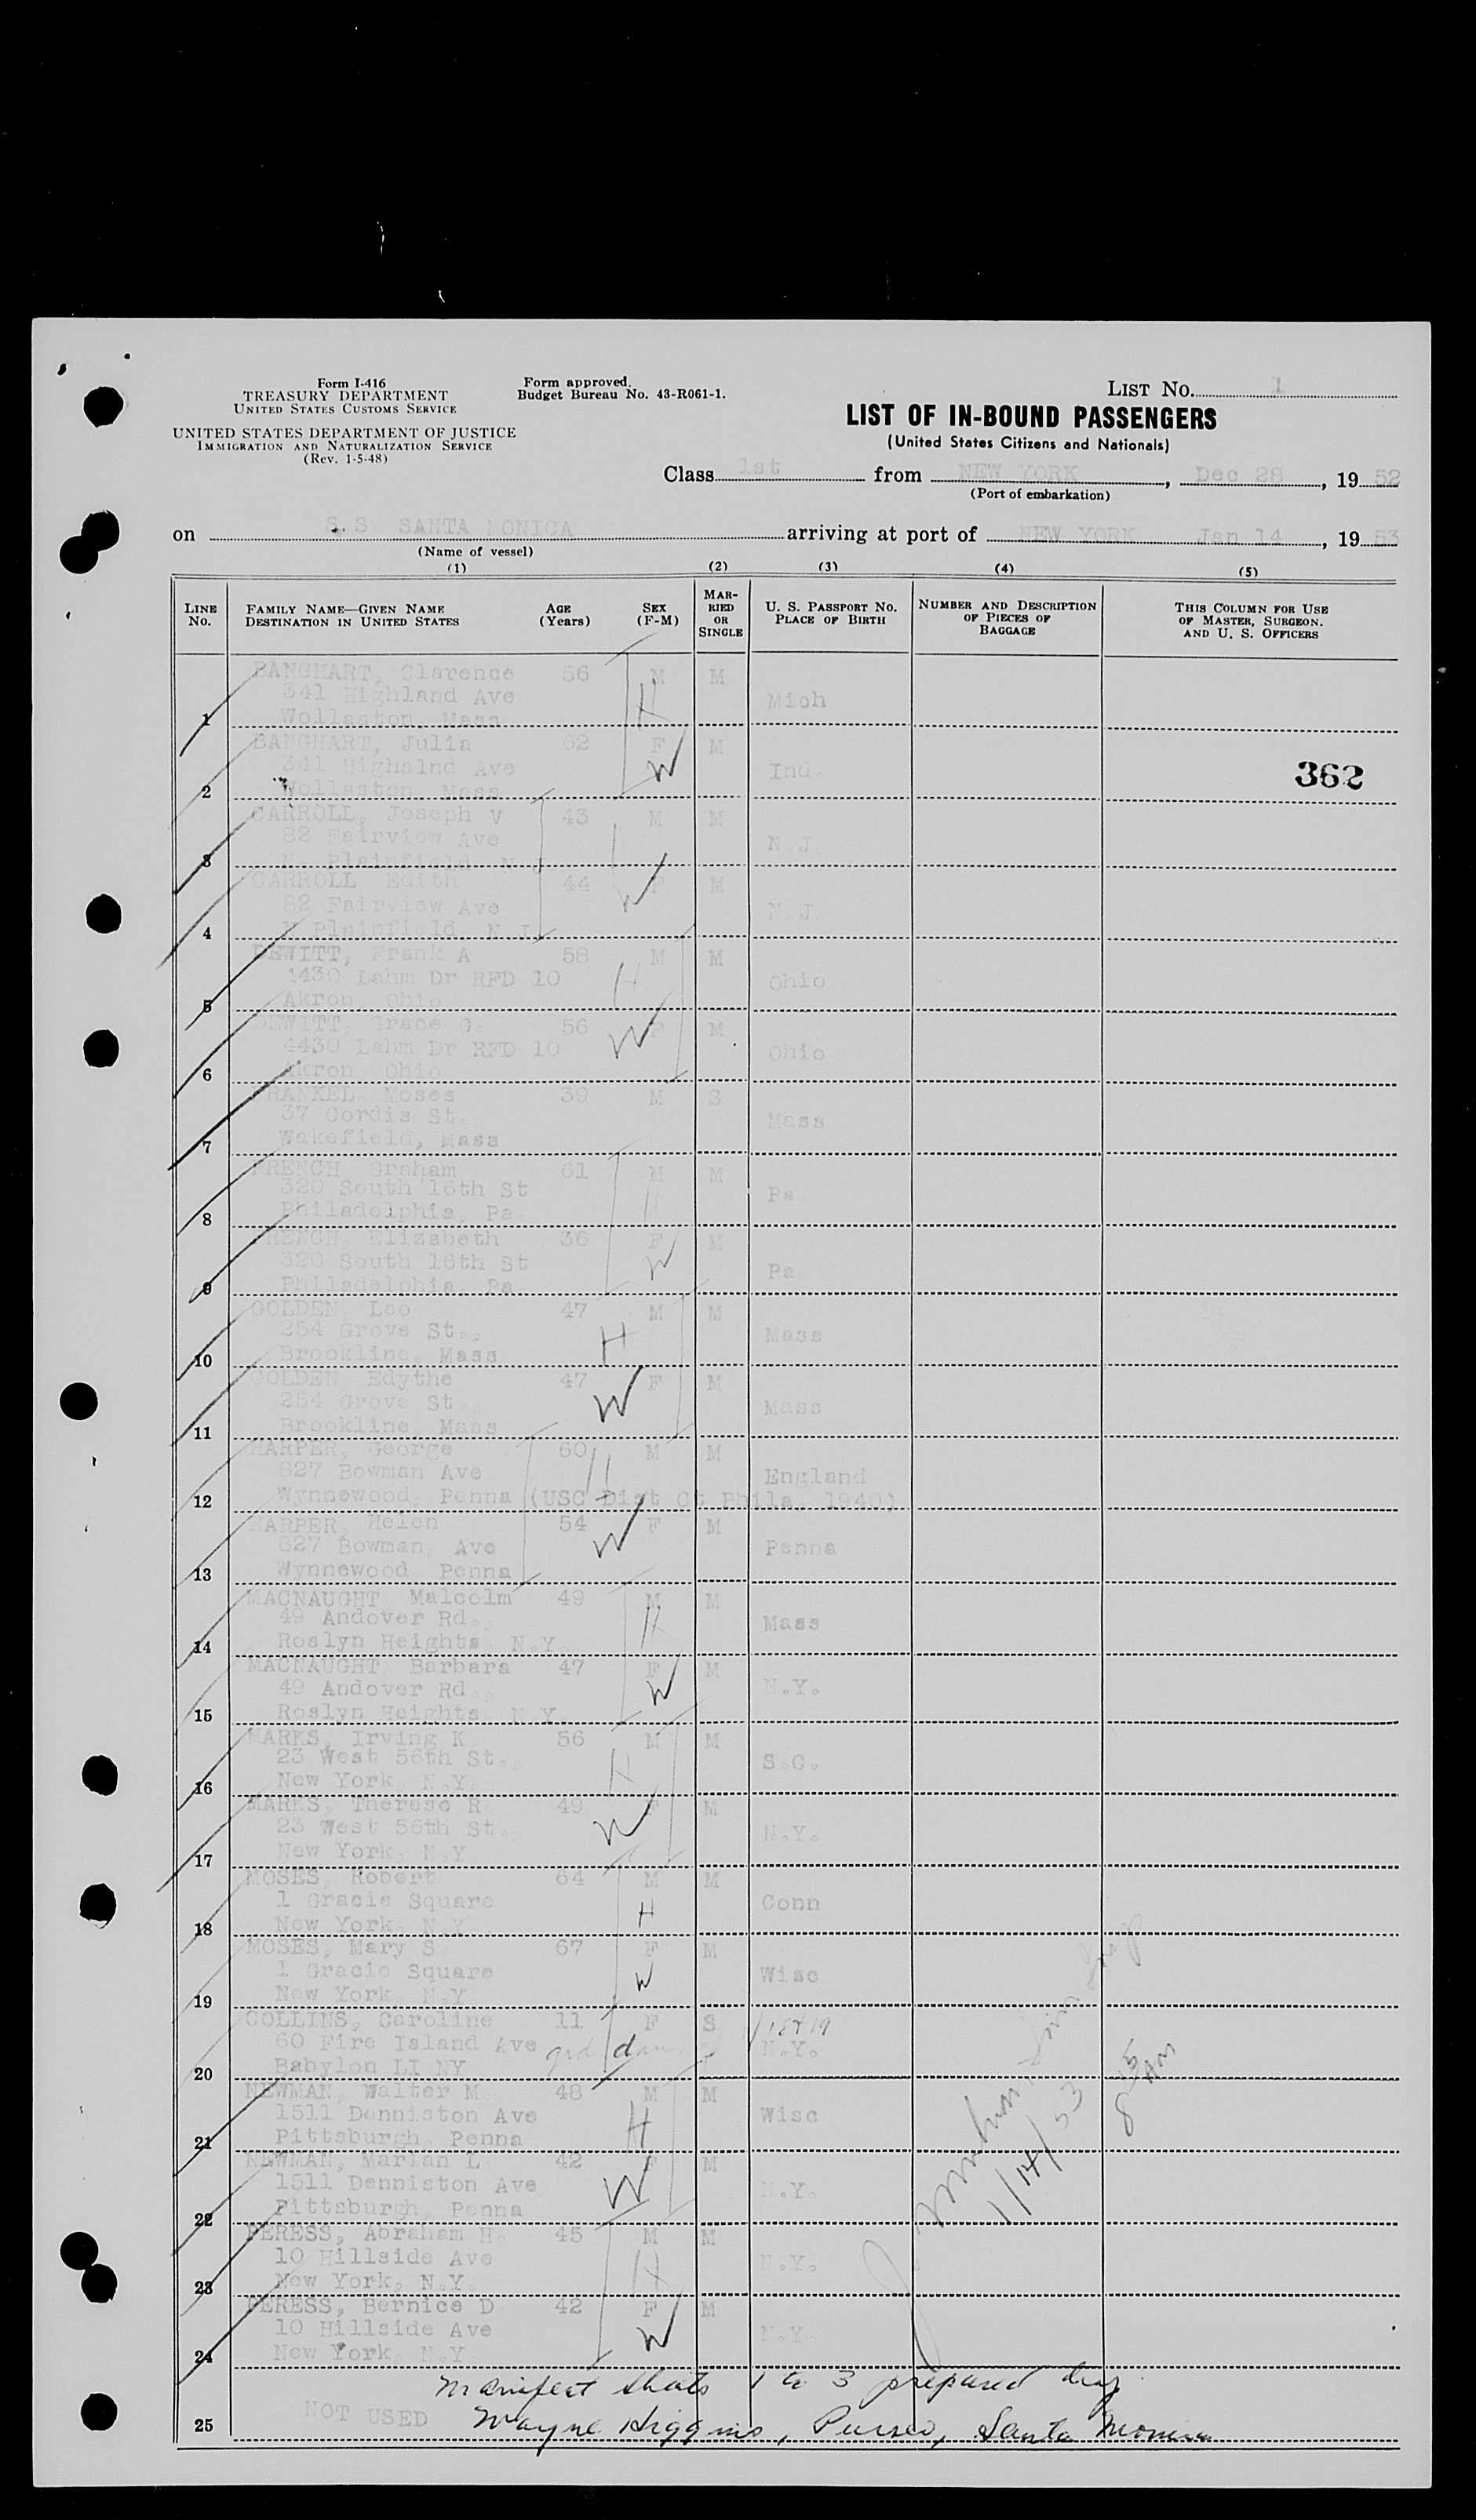 Form I-416
TREASURY DEPARTMENT
UNITED STATES CUSTOMS SERVICE
UNITED STATES DEPARTMENT OF JUSTICE
IMMIGRATION AND NATURALIZATION SERVICE
(Rev. 1-5-48)
Form approved.
Budget Bureau No. 43-R061-1.
LIST NO. 1
LIST OF IN-BOUND PASSENGERS
(United States Citizens and Nationals)
Class 1st from NEW YORK, Dec 28, 1952
(Port of embarkation)
on S.S SANTA MONICA arriving at port of NEW YORK Jan 14, 1953
(Name of vessel)
(1) (2) (3) (4) (5)
LINE NO. FAMILY NAME—GIVEN NAME DESTINATION IN UNITED STATES AGE (Years) SEX (F-M) MARRIED OR SINGLE U. S. PASSPORT NO. PLACE OF BIRTH NUMBER AND DESCRIPTION OF PIECES OF BAGGAGE THIS COLUMN FOR USE OF MASTER, SURGEON. AND U. S. OFFICERS
BANGHART, Clarence 56 M M
341 Highland Ave H Mich
1 Wollaston Mass
BANGHART, Julia 62 F M
341 Highalnd Ave W Ind. 362
2 Wollaston Mass
CARROLL, Joseph V 43 M M
82 Fairview Ave N.J.
3 N. Plainfield N J
CARROLL Edith 44 F M
82 Fairview Ave W N J
4 N Plainfield N J
DEWITT, Frank A 58 M M
4430 Lahm Dr RFD 10 H Ohio
5 Akron, Ohio
DEWITT, Grace G. 56 F M
4430 Lahm Dr RFD 10 W Ohio
6 Akron Ohio
FRANKEL Moses 39 M S
37 Cordis St. Mass
7 Wakefield, Mass
FRENCH Graham 61 M M
320 South 16th St H Pa
8 Philadelphia, Pa
FRENCH Elizabeth 36 F M
320 South 16th St W Pa
9 Philadelphia, Pa
GOLDEN Leo 47 M M
254 Grove St., H Mass
10 Brookline, Mass
GOLDEN Edythe 47 F M
254 Grove St. W Mass
11 Brookline Mass
HARPER, George 60 M M
827 Bowman Ave H England
12 Wynnewood, Penna (USC Dist Ct Phila. 1940)
HARPER Helen 54 F M
827 Bowman Ave W Penna
13 Wynnewood Penna
MACNAUGHT Malcolm 49 M M
49 Andover Rd., H Mass
14 Roslyn Heights N.Y.
MACNAUGHT Barbara 47 F M
49 Andover Rd., W N.Y.
15 Roslyn Heights N.Y.
MARKS, Irving K 56 M M
23 West 56th St., H S.C.
16 New York N.Y.
MARKS, Therese R 49 F M
23 West 56th St. W N.Y.
17 New York, N.Y.
MOSES, Robert 64 M M
1 Gracie Square H Conn
18 New York N.Y.
MOSES, Mary S. 67 F M
1 Gracie Square W Wisc
19 New York N.Y.
COLLINS, Caroline 11 F S
60 Fire Island Ave grd dau N.Y.
20 Babylon LI NY
NEWMAN, Walter M 48 M M
1511 Denniston Ave H Wisc
21 Pittsburgh Penna 1/14/53 8 15 AM
NEWMAN, Marian L 42 F M
1511 Denniston Ave W N.Y.
22 Pittsburgh, Penna
PERESS, Abraham H. 45 M M
10 Hillside Ave H N.Y.
23 New York, N.Y.
PERESS, Bernice D 42 F M
10 Hillside Ave W N.Y.
24 New York N.Y.
Manifest sheets 1 to 3 prepared by
25 NOT USED Wayne Higgins, Purser, Santa Monica